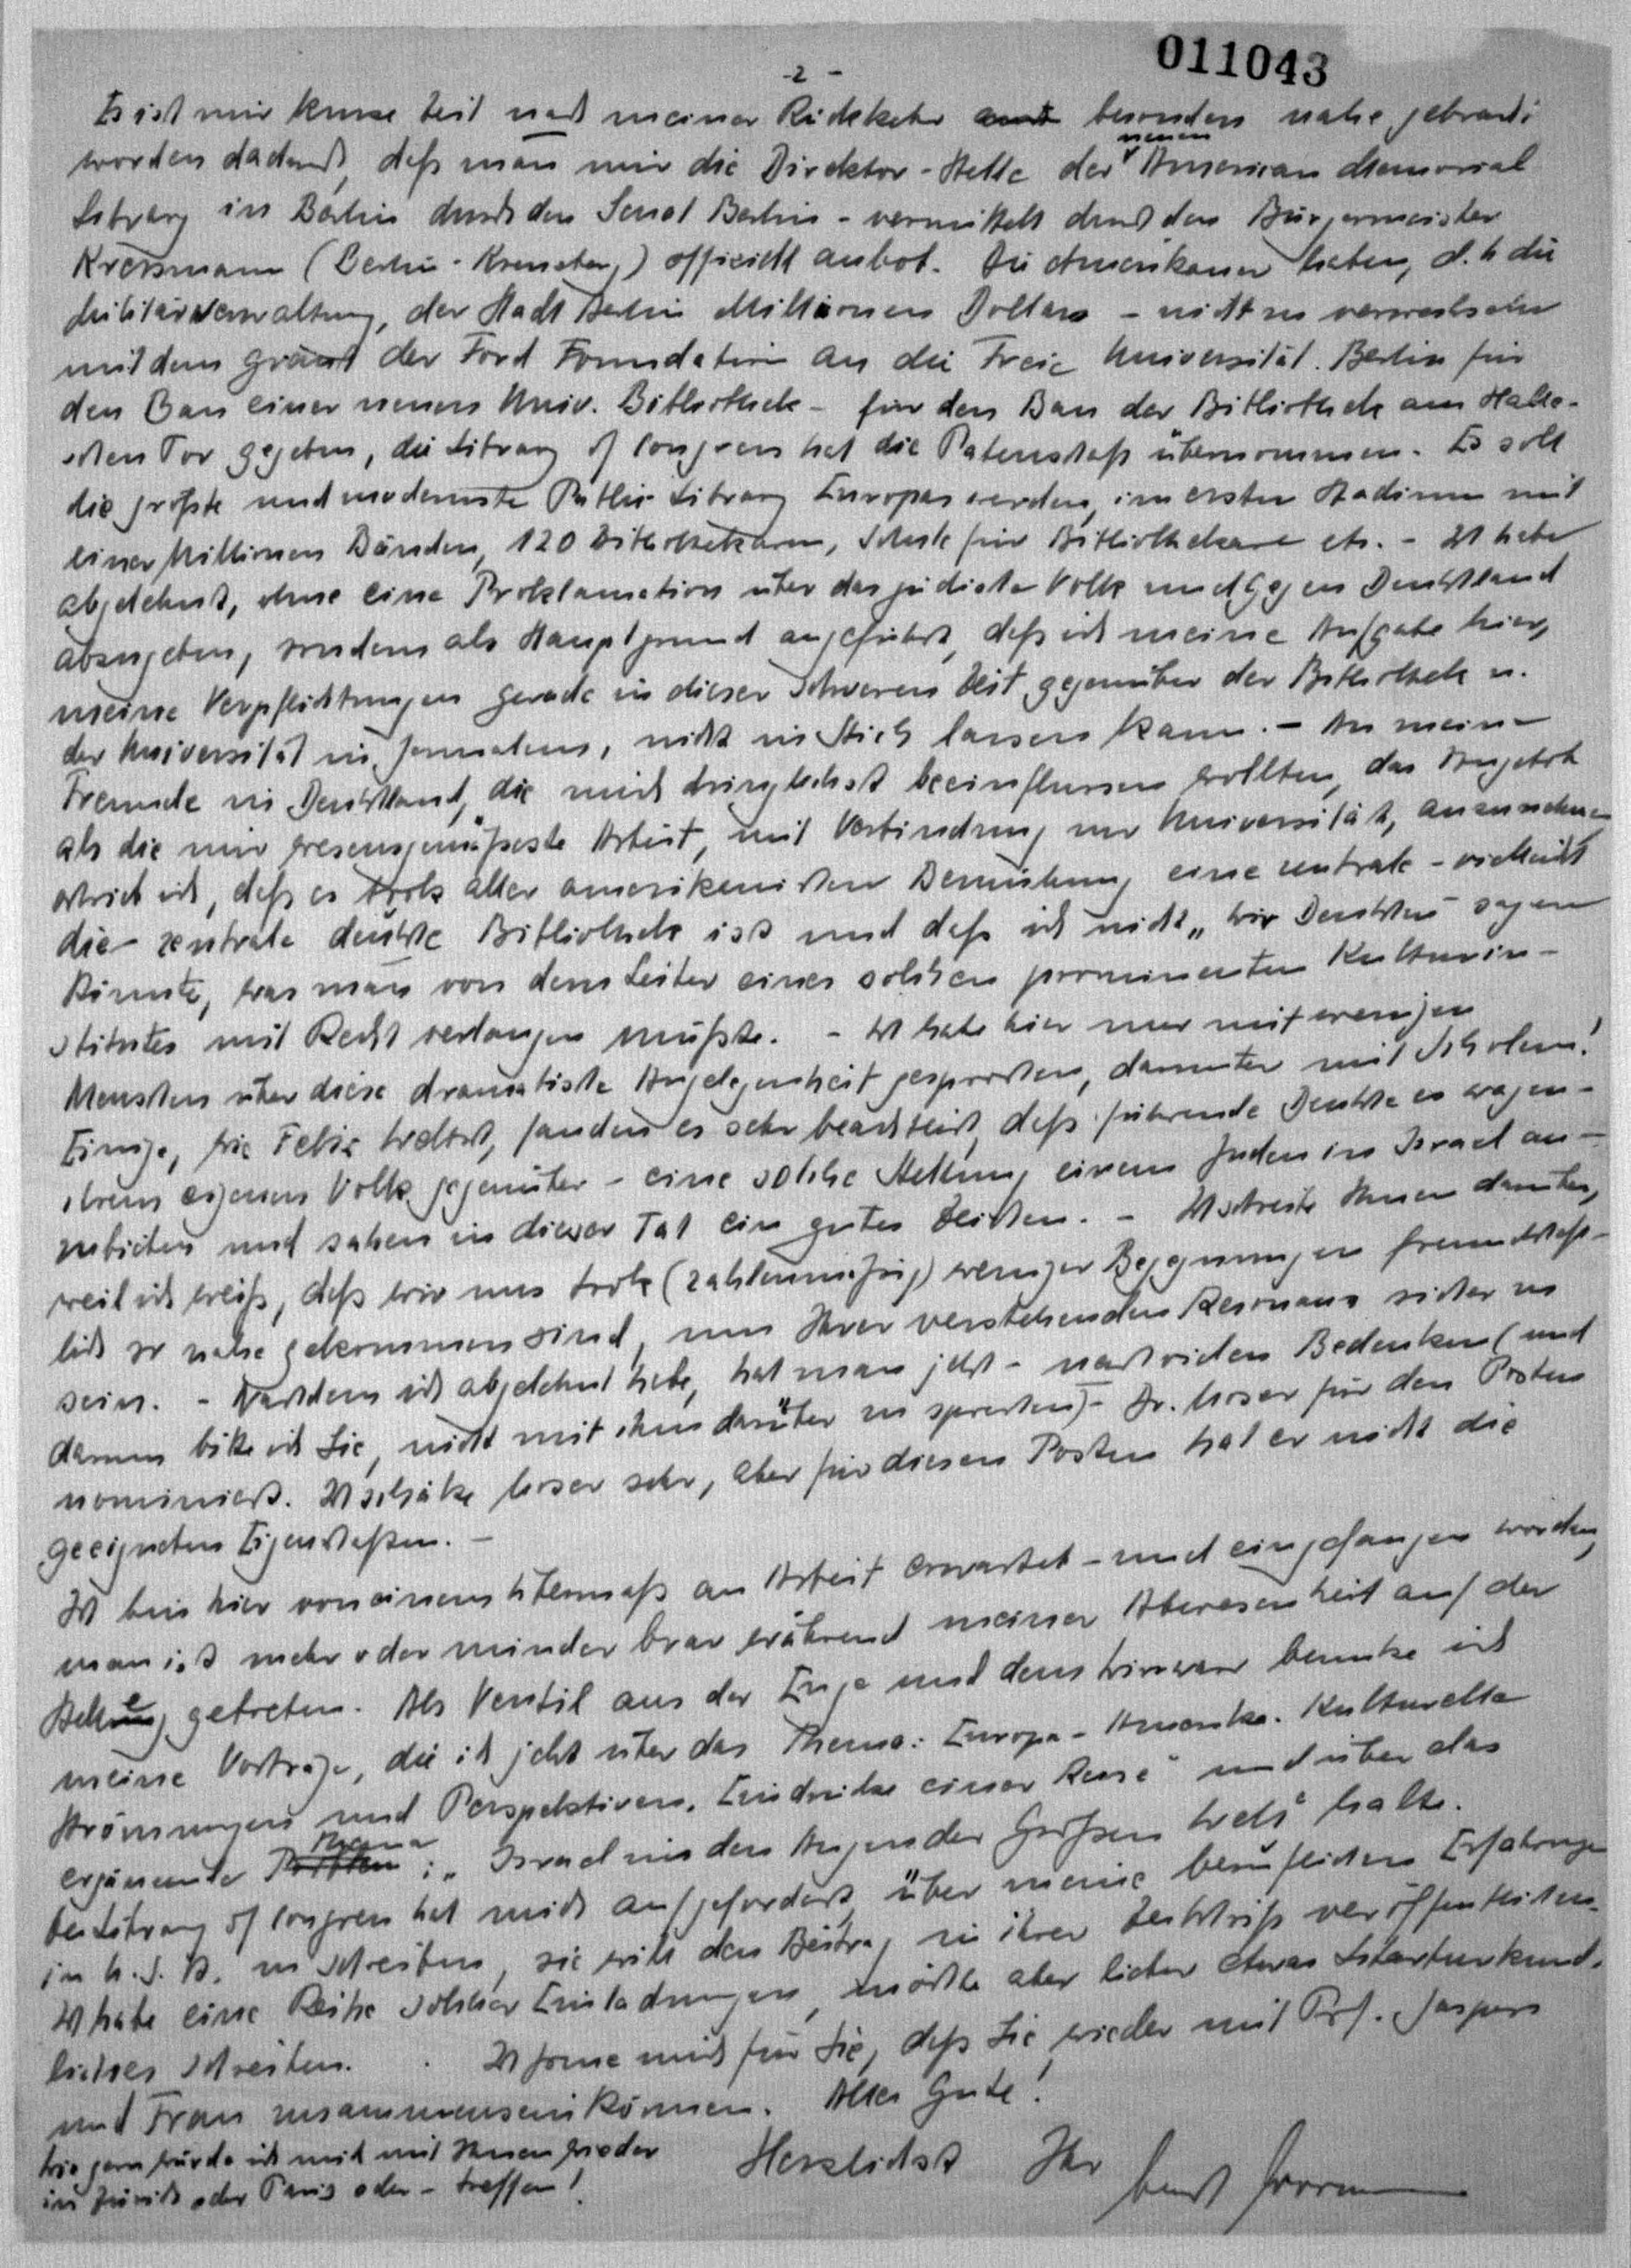 011043
- 2 -
Es ist mir kurze Zeit nach meiner Rückkehr besonders nahe gebracht
worden dadurch, daß man mir die Direktor-Stelle der neuen American Memorial
Library in Berlin durch den Senat Berlin - vermittelt durch den Bürgermeister
Kressmann (Berlin-Kreuzberg) officiell anbot. Die Amerikaner haben, d.h. die
Militärverwaltung, der Stadt Berlin Millionen Dollars - nicht zu verwechseln
mit dem grant der Ford Foundation an die Freie Universität Berlin für
den Bau einer neuen Univ. Bibliothek - für den Bau der Bibliothek am Halle-
schen Tor gegeben, die Library of Congress hat die Patenschaft übernommen. Es soll
die größte und modernste Public Library Europas werden, im ersten Stadium mit
einer Millionen Bänden, 120 Bibliothekaren, Schule für Bibliothekare etc. - Ich habe
abgelehnt, ohne eine Proklamation über das jüdische Volk und gegen Deutschland
abzugeben, sondern als Hauptgrund angeführt, daß ich meine Aufgabe hier,
meine Verpflichtungen gerade in dieser schweren Zeit gegenüber der Bibliothek u.
der Universität in Jerusalem, nicht im Stich lassen kann. - An meine
Freunde in Deutschland, die mich dringlichst beeinflussen wollten, das Angebot
als die mir wesensgemäßeste Arbeit, mit Verbindung zur Universität, anzunehmen
schrieb ich, daß es trotz aller amerikanischen Bemühung eine zentrale - vielleicht
die - zentrale deutsche Bibliothek ist und daß ich nicht „wir Deutschen“ sagen
könnte, was man von dem Leiter eines solchen prominenten Kulturin-
stitutes mit Recht verlangen müßte. - Ich habe hier nur mit wenigen
Menschen über diese dramatische Angelegenheit gesprochen, darunter mit Scholem!
Einige, wie Felix Weltsch, fanden es sehr beachtlich, daß führende Deutsche es wagen -
ihrem eigenen Volk gegenüber - eine solche Stellung einem Juden in Israel an-
zubieten und sahen in dieser Tat ein gutes Zeichen. - Ich schreibe Ihnen darüber,
weil ich weiß, daß wir uns trotz (zahlenmäßig) weniger Begegnungen freundschaft-
lich so nahe gekommen sind, um Ihrer verstehenden Resonanz sicher zu
sein. - Nachdem ich abgelehnt habe, hat man jetzt - nach vielen Bedenken (und
darum bitte ich Sie, nicht mit ihm darüber zu sprechen) - Dr. Moser für den Posten
nominiert. Ich schätze Moser sehr, aber für diesen Posten hat er nicht die
geeigneten Eigenschaften. -
Ich bin hier von einem Übermaß an Arbeit erwartet - und eingefangen worden,
man ist mehr oder minder brav während meiner Abwesenheit auf der
Stelle getreten. Als Ventil aus der Enge und dem Wirrwarr benutze ich
meine Vorträge, die ich jetzt über das Thema: Europa - Amerika. Kulturelle
Strömungen und Perspektiven. Eindrücke einer Reise“ und über das
ergänzende Thema: „Israel in den Augen der Großen Welt“ halte.
Die Library of Congress hat mich aufgefordert, über meine beruflichen Erfahrungen
in U.S.A. zu schreiben, sie will den Beitrag in ihrer Zeitschrift veröffentlichen.
Ich habe eine Reihe solcher Einladungen, möchte aber lieber etwas Literaturkund-
liches schreiben. Ich freue mich für Sie, daß Sie wieder mit Prof. Jaspers
und Frau zusammensein können. Alles Gute!
Wie gern würde ich mich mit Ihnen wieder
in Zürich oder Paris oder - treffen!
Herzlichst Ihr